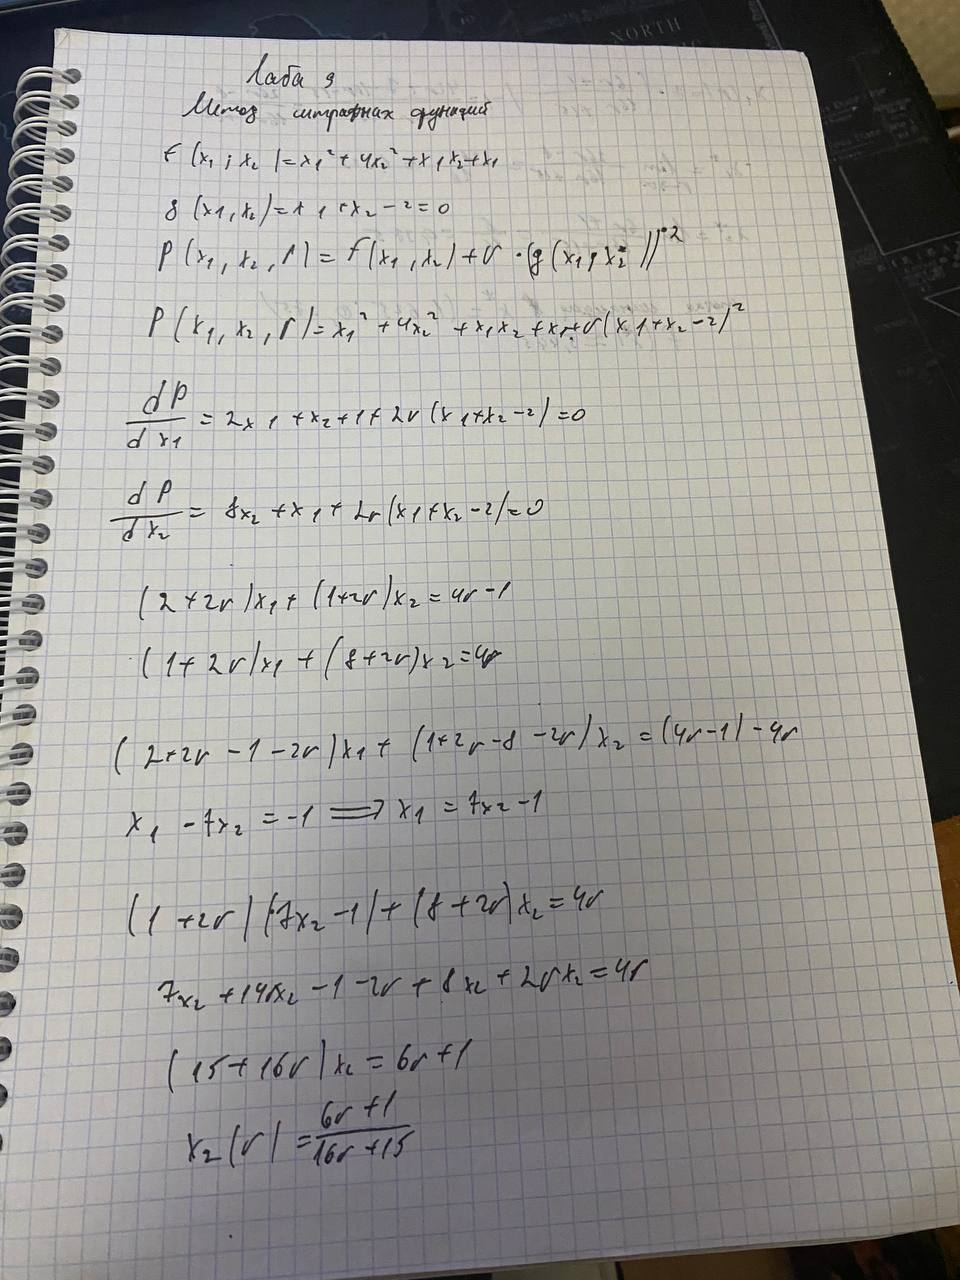 Лаба 9
Метод штрафных функций
f(x1; x2)=x1²+4x2²+x1x2+x1
g(x1,x2)=x1+x2-2=0
P(x1,x2,r)=f(x1,x2)+r·(g(x1,x2))²
P(x1,x2,r)=x1²+4x2²+x1x2+x1+r(x1+x2-2)²
dP/dx1=2x1+x2+1+2r(x1+x2-2)=0
dP/dx2=8x2+x1+2r(x1+x2-2)=0
(2+2r)x1+(1+2r)x2=4r-1
(1+2r)x1+(8+2r)x2=4r
(2+2r-1-2r)x1+(1+2r-8-2r)x2=(4r-1)-4r
x1-7x2=-1⟹x1=7x2-1
(1+2r)(7x2-1)+(8+2r)x2=4r
7x2+14rx2-1-2r+8x2+2rx2=4r
(15+16r)x2=6r+1
x2(r)=(6r+1)/(16r+15)
NORTH